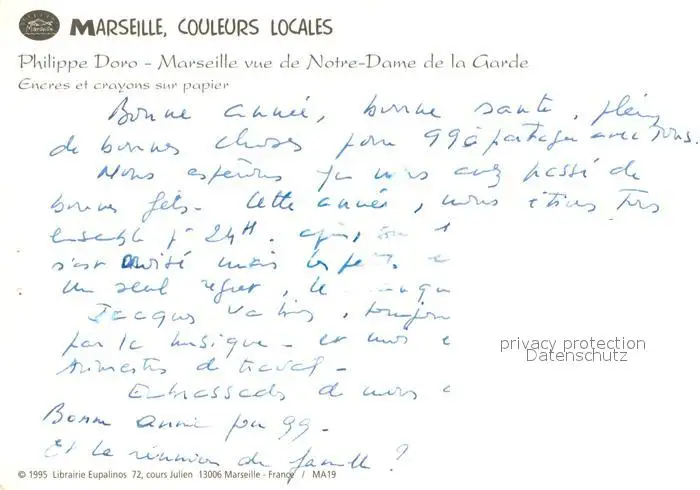 Marseille
MARSEILLE, COULEURS LOCALES
Philippe Doro - Marseille vue de Notre-Dame de la Garde
Encres et crayons sur papier
Bonne année, bonne santé, plein
de bonnes choses pour 99 à partager avec tous.
Nous espérons que vous avez passé de
bonnes fêtes. Cette année, nous étions tous
ensemble pr 24H.
s'est mais les
Un seul regret, le
Jacques va bien, toujours
par la musique - et nous
de travail -
Embrassades de nous
privacy protection
Datenschutz
Bonne année pour 99.
Et la réunion de famille ?
© 1995 Librairie Eupalinos 72, cours Julien 13006 Marseille - France / MA19